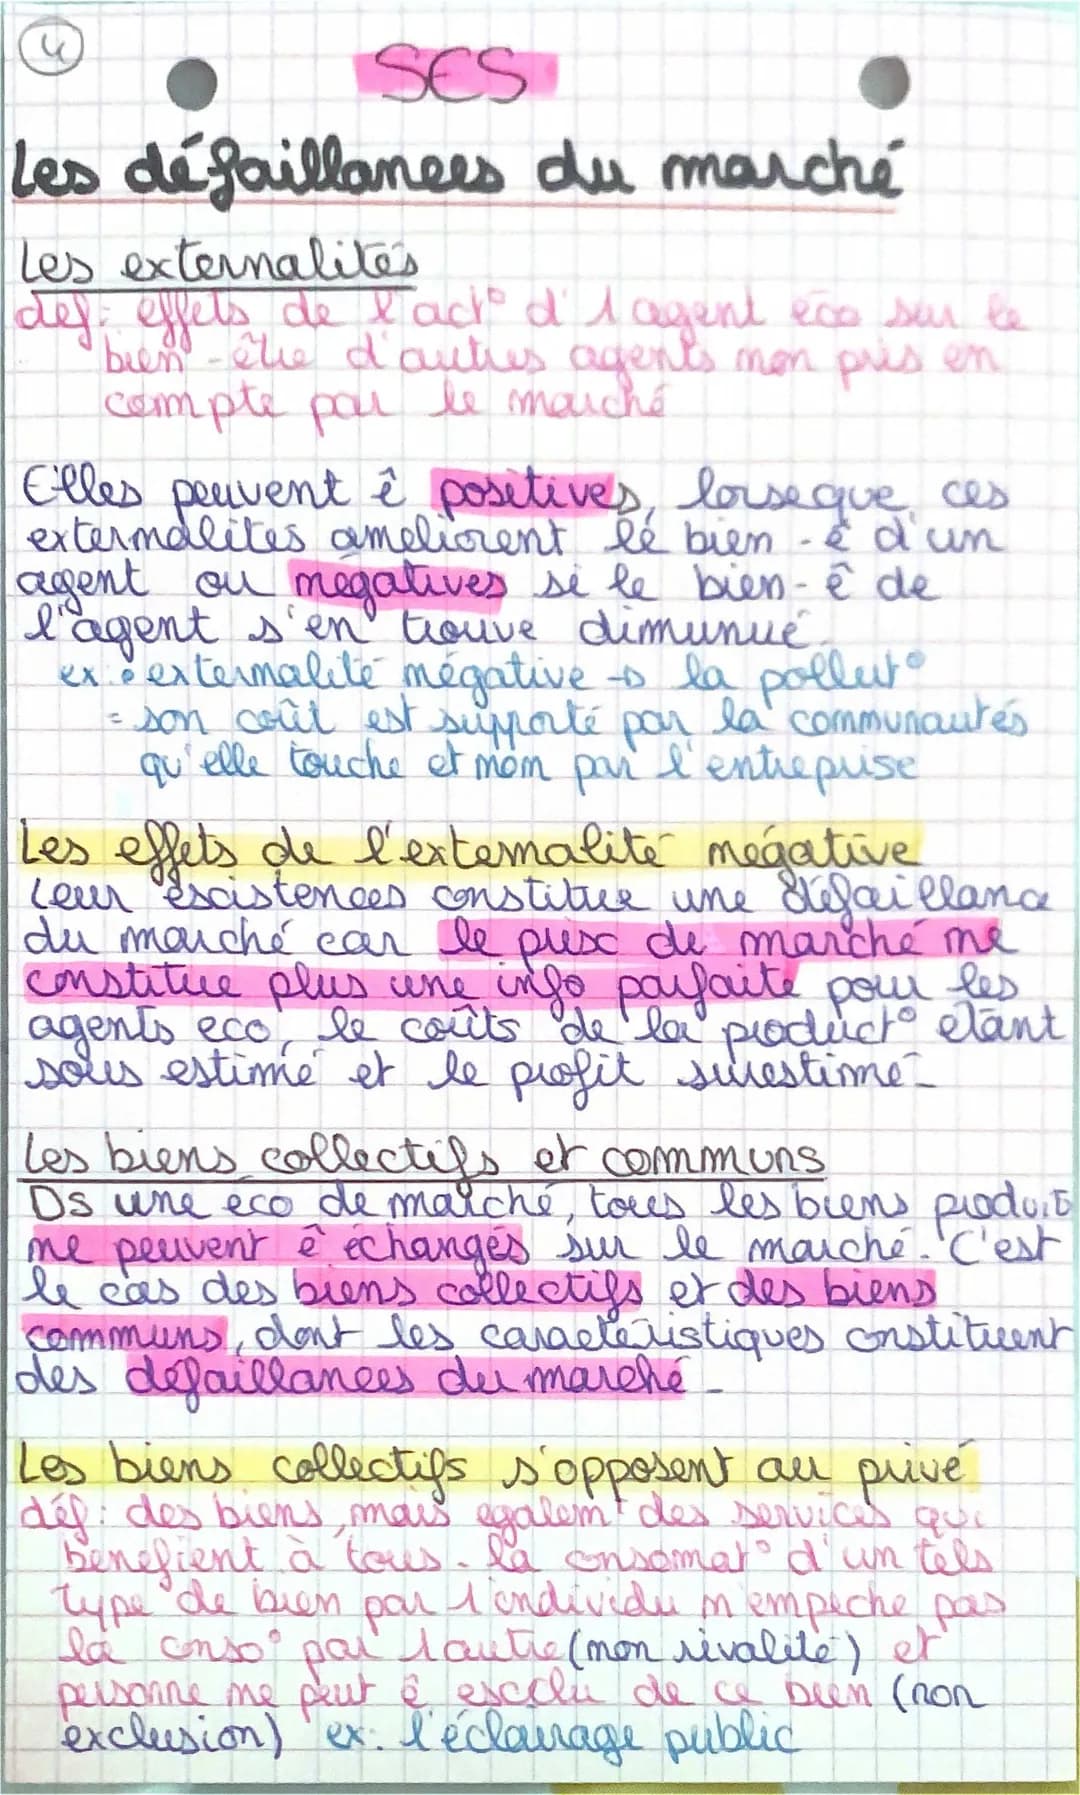 4
SES
Les défaillances du marché
Les externalités
def: effets de l'act° d'1 agent éco sur le
bien-être d'autres agents non pris en
compte par le marché
Elles peuvent ê positives, lorseque ces
externalités ameliorent le bien-ê d'un
agent ou négatives si le bien-ê de
l'agent s'en trouve dimunué.
ex: externalité négative → la pollut°
= son coût est supporté par la communautés
qu'elle touche et non par l'entreprise
Les effets de l'externalité négative
Leur existences constitue une défaillance
du marché car le prix de marché ne
constitue plus une info parfaite pour les
agents eco, le coûts de la product° étant
sous estimé et le profit surestimé.
Les biens collectifs et communs
Ds une éco de marché, tous les biens produits
ne peuvent ê échangés sur le marché. C'est
le cas des biens collectifs et des biens
communs, dont les caractéristiques constituent
des défaillances du marché.
Les biens collectifs s'opposent au privé
déf: des biens, mais egalemt des services qui
benefient à tous. la consomat° d'un tels
type de bien par 1 individu n'empeche pas
la conso° par 1 autre (non rivalité) et
personne ne peut ê exclu de ce bien (non
exclusion) ex: l'éclairage public